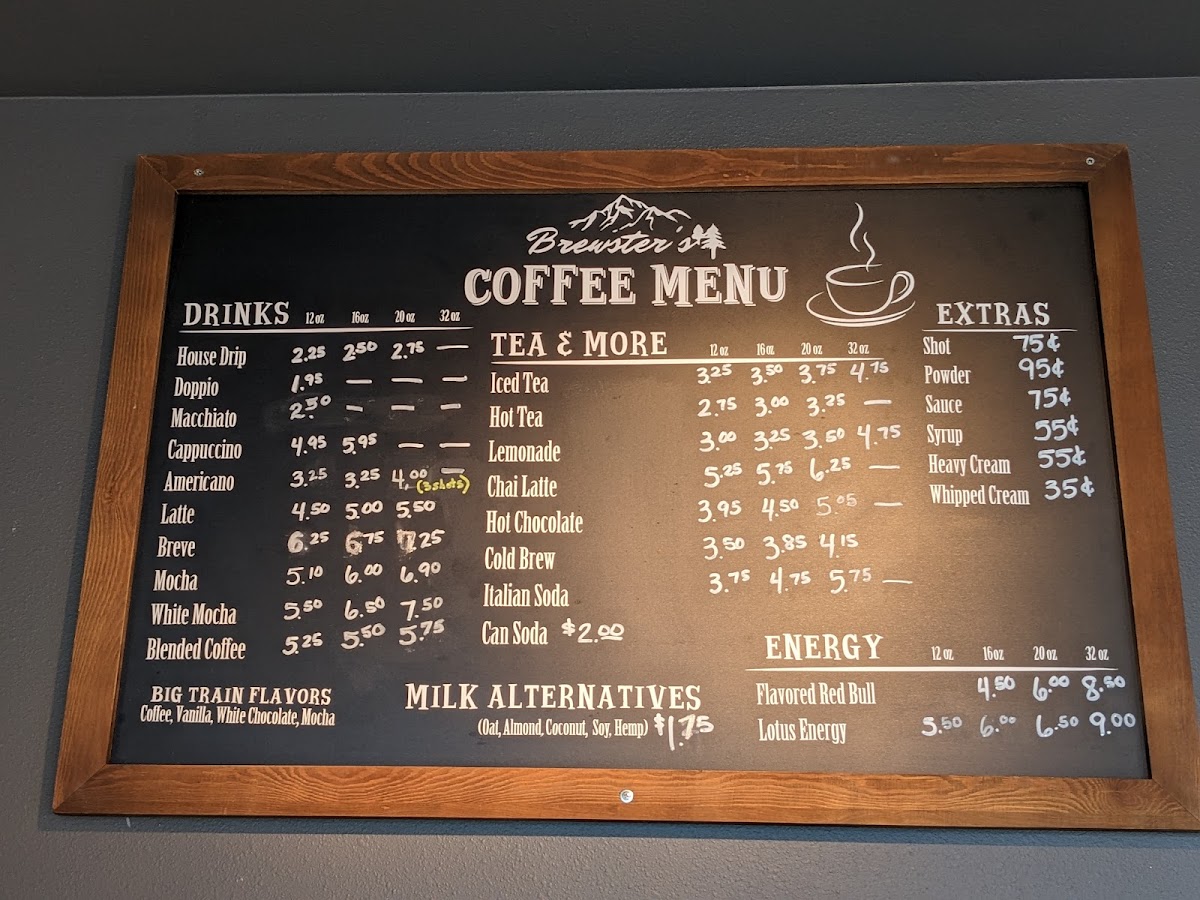 Brewster's
COFFEE MENU
DRINKS 12 oz 16oz 20 oz 32 oz
House Drip 2.25 2.50 2.75 —
Doppio 1.95 — — —
Macchiato 2.50 — — —
Cappuccino 4.95 5.95 — —
Americano 3.25 3.25 4.00 (3 shots) —
Latte 4.50 5.00 5.50
Breve 6.25 6.75 7.25
Mocha 5.10 6.00 6.90
White Mocha 5.50 6.50 7.50
Blended Coffee 5.25 5.50 5.75
BIG TRAIN FLAVORS
Coffee, Vanilla, White Chocolate, Mocha
TEA & MORE 12 oz 16oz 20 oz 32 oz
Iced Tea 3.25 3.50 3.75 4.75
Hot Tea 2.75 3.00 3.25 —
Lemonade 3.00 3.25 3.50 4.75
Chai Latte 5.25 5.75 6.25 —
Hot Chocolate 3.95 4.50 5.05 —
Cold Brew 3.50 3.85 4.15
Italian Soda 3.75 4.75 5.75 —
Can Soda $2.00
MILK ALTERNATIVES
(Oat, Almond, Coconut, Soy, Hemp) $1.75
EXTRAS
Shot 75¢
Powder 95¢
Sauce 75¢
Syrup 55¢
Heavy Cream 55¢
Whipped Cream 35¢
ENERGY 12 oz 16oz 20 oz 32 oz
Flavored Red Bull 4.50 6.00 8.50
Lotus Energy 5.50 6.00 6.50 9.00